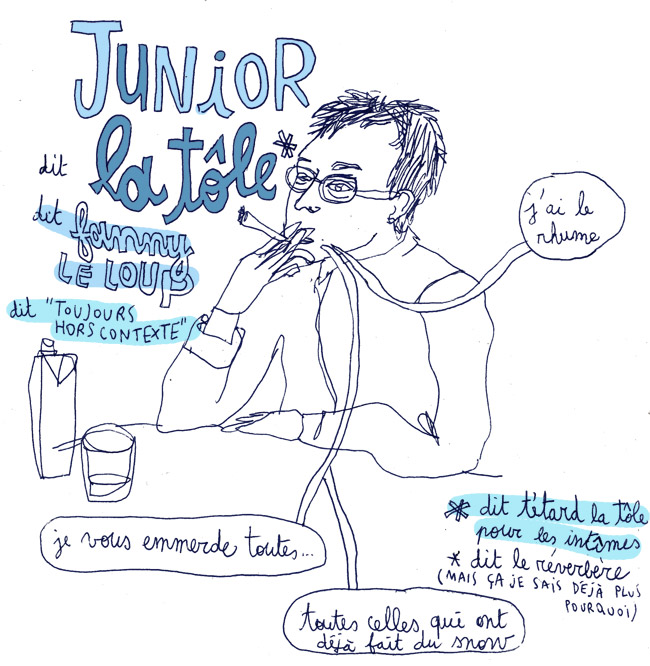 JUNIOR
dit la tôle*
dit fanny
LE LOUP
dit "TOUJOURS
HORS CONTEXTE"
j'ai le
rhume
je vous emmerde toutes...
toutes celles qui ont
déjà fait du snow
** dit têtard la tôle
pour les intimes
* dit le réverbère
(MAIS ÇA JE SAIS DÉJÀ PLUS
POURQUOI)